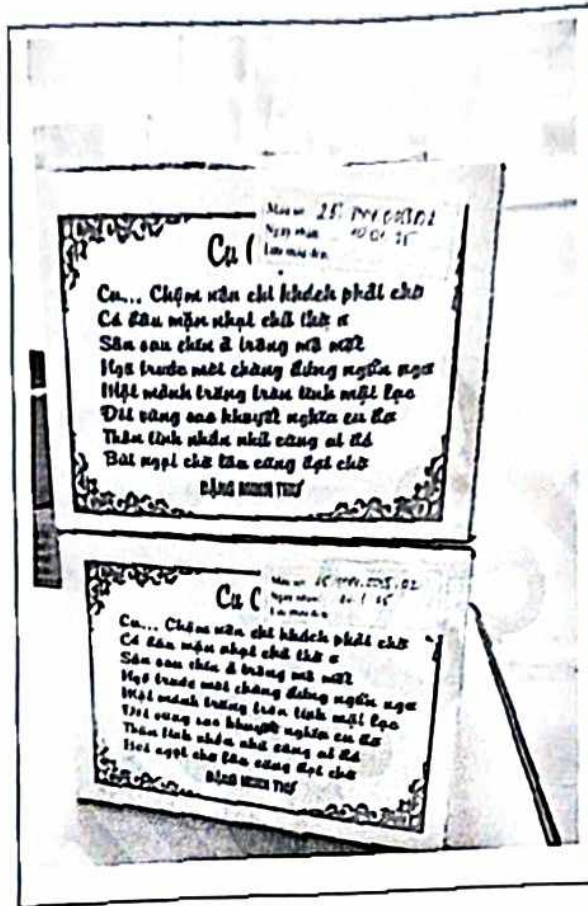 Cu (
Mẫu số:
Ngày nhận:
Lưu mẫu đến:
Cu... Chậm xăn chi khách phải chờ
Cá dẫu mặn nhạt chữ thờ ơ
Sân sau chín ả trông mà mệt
Ngõ trước mời chàng đứng ngẩn ngơ
Một mảnh trăng tròn tình một lạc
Đôi vùng sao khuyết nghĩa cu
Thân tình nhắn nhủ cùng ai đó
Bùi ngọt chờ lâu cũng đợi chờ
ĐẶNG MINH THƯ
Cu C
Mẫu số:
Ngày nhận:
Lưu mẫu đến:
Cu... Chậm xăn chi khách phải chờ
Cá dẫu mặn nhạt chữ thờ ơ
Sân sau chín ả trông mà mệt
Ngõ trước mời chàng đứng ngẩn ngơ
Một mảnh trăng tròn tình một lạc
Đôi vùng sao khuyết nghĩa cu
Thân tình nhắn nhủ cùng ai đó
ngọt chờ lâu cũng đợi chờ
ĐẶNG MINH THƯ